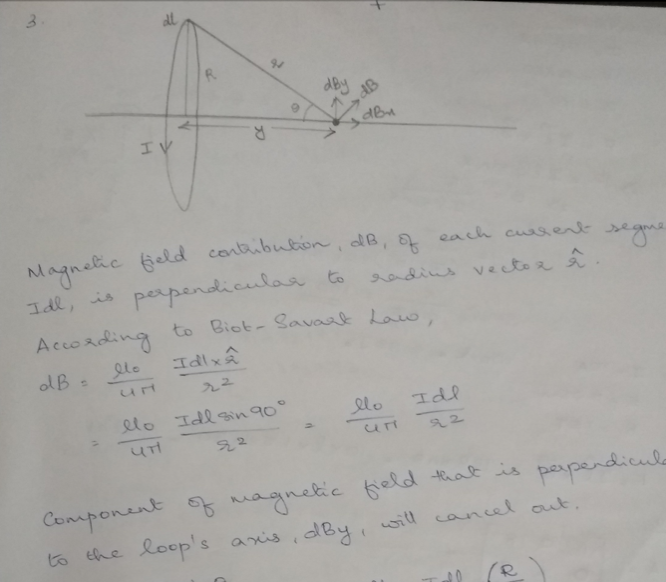 3.
dl
R
r
θ
dBy
dB
dBx
I
y
Magnetic field contribution, dB, of each current segme
Idl, is perpendicular to radius vector r̂.
According to Biot-Savart Law,
dB = μ₀/4π Idl×r̂/r²
= μ₀/4π Idl sin90°/r² = μ₀/4π Idl/r²
Component of magnetic field that is perpendicul
to the loop's axis, dBy, will cancel out.
Idl (R